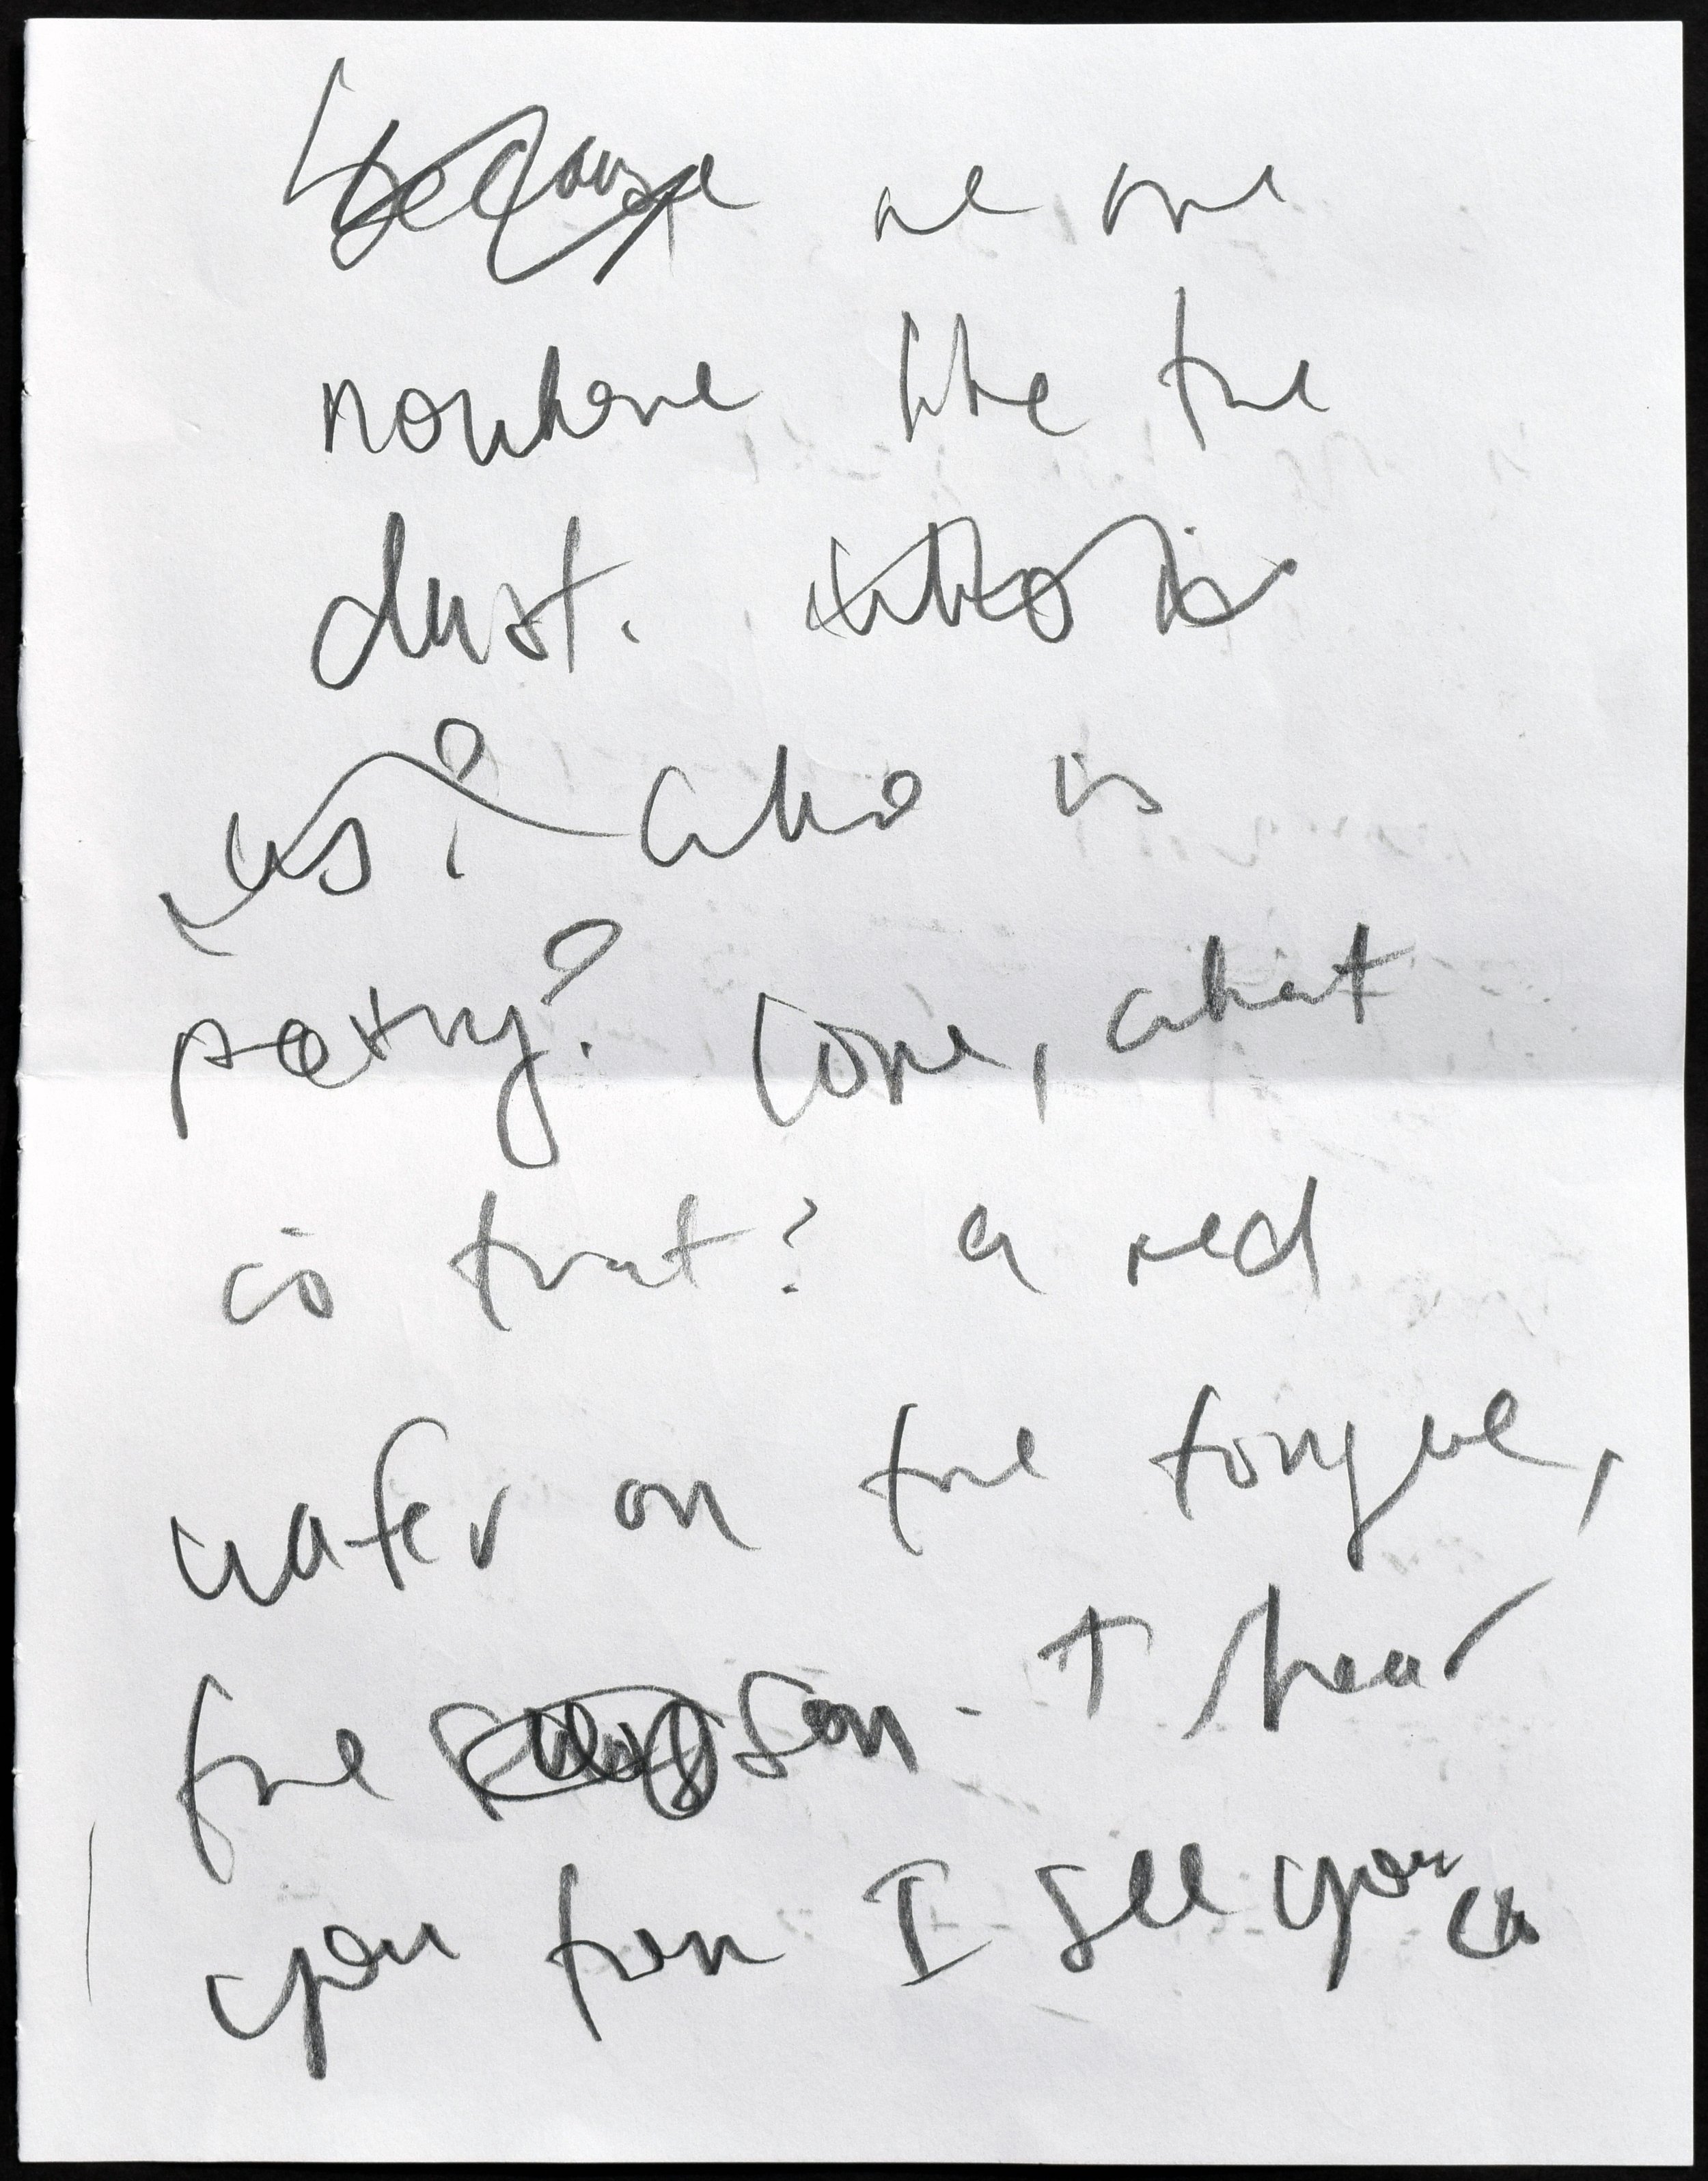 because we are
nowhere like the
dust. who is
us? who is
poetry? Love, what
is that? a red
wafer on the tongue,
the son. I hear
you then I see you